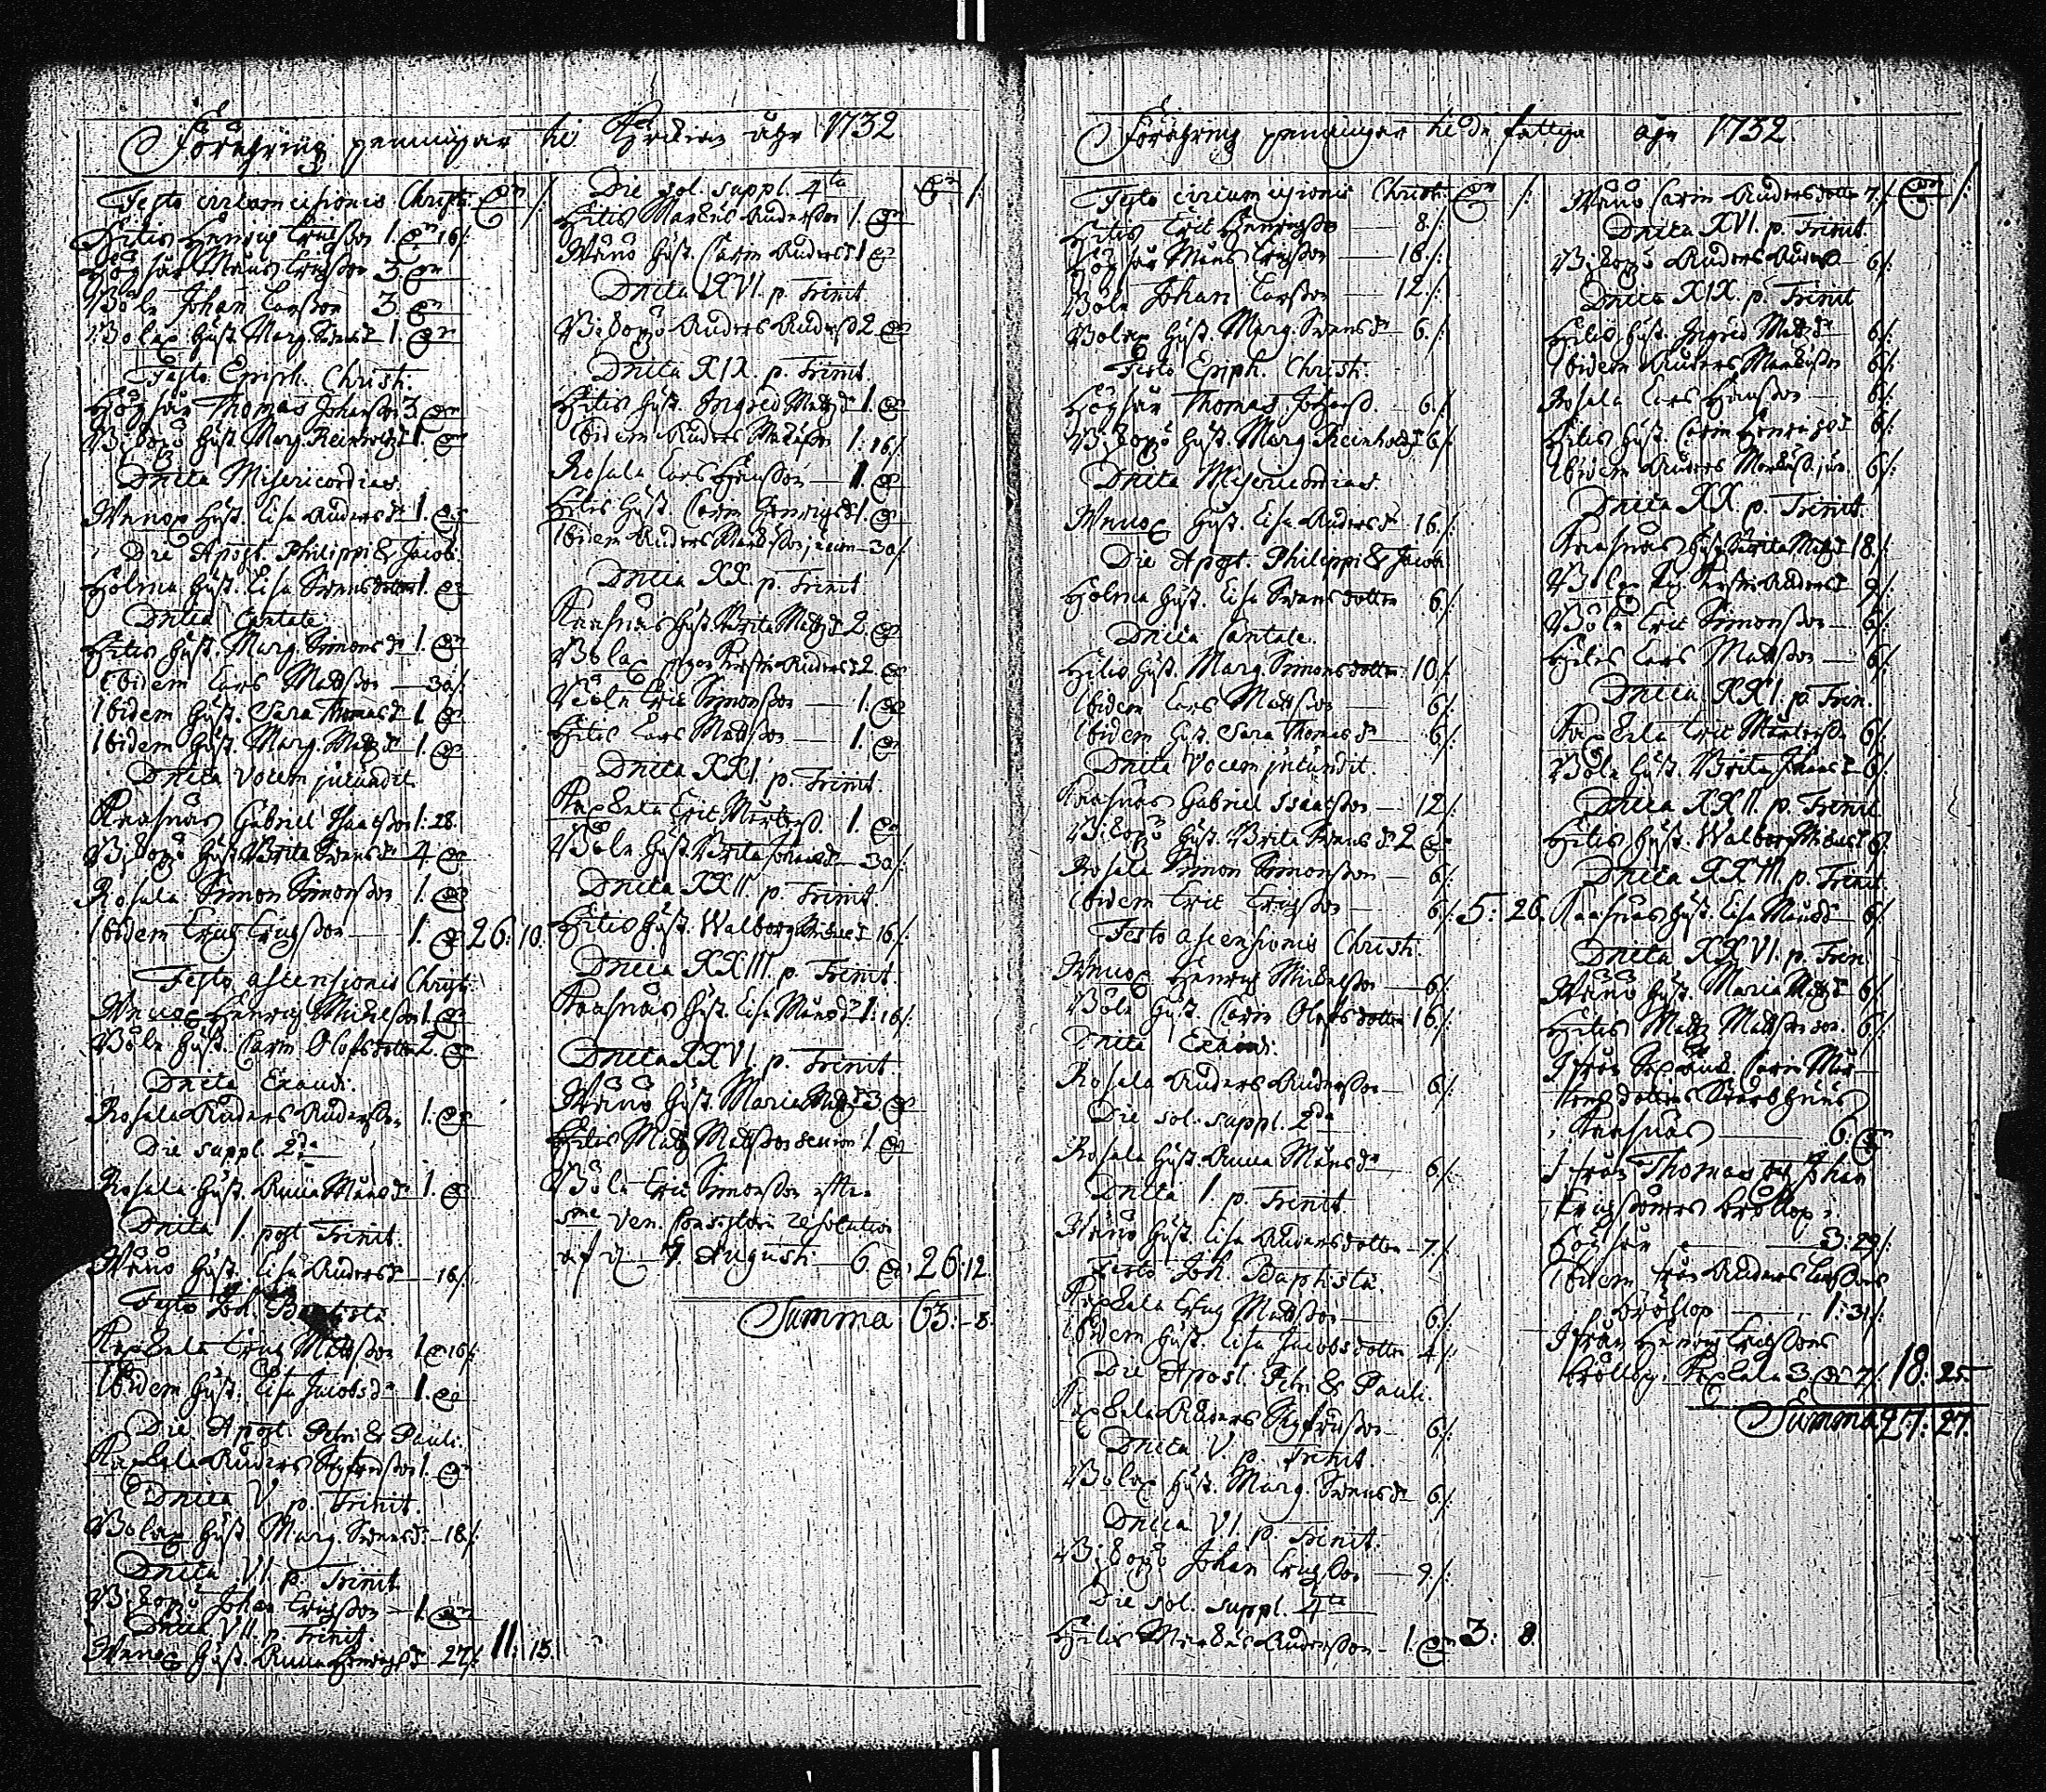 Förähring penningar til Kyrckian åhr 1732
Festo circumcisionis Christi.
Hitis Henrig Erichsson 1. 16/:
Högsår Måns Erichsson 3.
Böle Johan Larsson 3.
Bolax hust. Marg. Svensd 1.
Festo Epiph. Christi.
Högsår Thomas Johansson 3.
Biskopö hust. Marg. Reinholdsd 1.
Dnica Misericordias.
Wänox hust. Lisa Andersdr 1.
Die Apost. Philippi & Jacob.
Holma hust. Lisa Svensdotter 1.
Dnica Cantate
Hitis hust. Marg. Simonsdr 1.
Ibidem Lars Mattsson 30/:
Ibidem hust. Sara Thomasdr 1.
Ibidem hust. Marg. Mattsdr 1.
Dnica Vocem jucundit.
Kaasnäs Gabriel Isaacsson 1: 28.
Biskopö hust. Brita Svensdr 4.
Rosala Simon Simonsson 1.
Ibidem Erich Erichsson 1. 26: 10.
Festo ascensionis Christi.
Wänox Henrig Michelsson 1.
Böle hust. Carin Olofsdotter 2.
Dnica Exaudi.
Rosala Anders Andersson 1.
Die suppl. 2da
Rosala hust. Anna Månsdr 1.
Dnica 1. post Trinit.
Wånö hust. Lisa Andersdr 16/:
Festo Joh. Baptistæ.
Kexskala Erich Mattsson 1. 16/:
Ibidem hust. Lisa Jacobsdr 1.
Die Apost. Petri & Pauli.
Kexskala Anders Sigfredsson 1.
Dnica V. p. Trinit.
Bolax hust. Marg. Svensdr 18/:
Dnica VI. p. Trinit.
Biskopö Johan Erichsson 1.
Dnica VII. p. Trinit.
Wänox hust. Anna Henrichsd 27/: 11: 15.
Die sol. suppl. 4ta
Hitis Markus Andersson 1.
Wånö hust. Carin Andersd 1
Dnica XVI. p. Trinit.
Biskopö Anders Andersd 2.
Dnica XIX. p. Trinit.
Hitis hust. Ingred Mattsd 1.
Ibidem Anders Markusson 1: 16/:
Rosala Lars Hansson 1.
Hitis hust. Carin Henrigsd 1.
Ibidem Anders Markusson junior 30/:
Dnica XX. p. Trinit.
Kaasnäs hust. Brita Mattsd 2.
Bolax Kirstin Andersd 2.
Böle Eric Simonsson 1.
Hitis Lars Mattsson 1.
Dnica XXI. p. Trinit.
Kexskala Eric Mårtenss. 1.
Böle hust. Brita Johansd 30/:
Dnica XXII. p. Trinit.
Hitis hust. Walborg 16/:
Dnica XXIII. p. Trinit.
Kaasnäs hust. Lisa Månsd 1: 16/:
Dnica XXVI. p. Trinit.
Wånö hust. Maria Mattsd 3
Hitis Matts Mattsson senior 1.
Böle Eric Simonsson efter
Ven. Consistorii resolution
af d. 7. Augusti 6. 26: 12.
Summa 63: - 5.
Förähring penningar til de fattiga åhr 1732.
Festo circumcisionis Christi.
Hitis Eric Henrigsson 8/:
Högsår Måns Erichsson 18/:
Böle Johan Larsson 12/:
Bolax hust. Marg. Svensdr 6/:
Festo Epiph. Christi.
Högsår Thomas Johanss. 6/:
Biskopö hust. Marg. Reinholdsd 6/:
Dnica Misericordias.
Wänox hust. Lisa Andersdr 16/:
Die Apost. Philippi & Jacob.
Holma hust. Lisa Svensdotter 6/:
Dnica Cantate.
Hitis hust. Marg. Simonsdotter 10/:
Ibidem Lars Mattsson 6/:
Ibidem hust. Sara Thomasdr 6/:
Dnica Vocem jucundit.
Kaasnäs Gabriel Isaacsson 12/:
Biskopö hust. Brita Svensdr 2.
Rosala Simon Simonsson 6/:
Ibidem Eric Erichsson 6/: 5: 26.
Festo ascensionis Christi.
Wänox Henrig Michelsson 6/:
Böle hust. Carin Olofsdotter 16/:
Dnica Exaudi.
Rosala Anders Andersson 6/:
Die sol. suppl. 2da
Rosala hust. Anna Månsdr 6/:
Dnica 1 p. Trinit.
Wånö hust. Lisa Andersdotter 7/:
Festo Joh. Baptistæ.
Kexskala Erich Mattsson 6/:
Ibidem hust. Lisa Jacobsdotter 4/:
Die Apost. Petri & Pauli.
Kexskala Anders Sigfredsson 6/:
Dnica V. p. Trinit.
Bolax hust. Marg. Svensdr 6/:
Dnica VI. p. Trinit.
Biskopö Johan Erichsson 9/:
Die sol. suppl. 4ta
Hitis Markus Andersson 1. 3: 8.
Wånö Carin Andersdotter 7/:
Dnica XVI. p. Trinit.
Biskopö Anders Anderss. 6/:
Dnica XIX. p. Trinit
Hitis hust. Ingred Mattsdr 6/:
Ibidem Anders Markusson 6/:
Rosala Lars Hansson 6/:
Hitis hust. Carin Henrigsd 6/:
Ibidem Anders Markuss. jun. 6/:
Dnica XX. p. Trinit.
Kaasnäs hust. Brita Mattsd 18/:
Bolax Kirstin Andersd 9/:
Böle Eric Simonsson 6/:
Hitis Lars Mattsson 6/:
Dnica XXI. p. Trin.
Kexskala Eric Mårtenss. 6/:
Böle hust. Brita Johansd 6/:
Dnica XXII. p. Trinit
Hitis hust. Walborg 8.
Dnica XXIII. p. Trinit.
Kaasnäs hust. Lisa Månsd 6/:
Dnica XXVI. p. Trin.
Wånö hust. Maria Mattsd 6/:
Hitis Matts Mattsson 6/:
Ifrån Carin Mår-
tensdotters
Kaasnäs 6.
Ifrån Thomas och Johan
Erichssöners bröllop i
Högsår 3: 29/:
Ibidem från Anders Larssons
bröllop 1: 31/:
Ifrån Henrig Erichssons
bröllop, Kexskala 3. 7/: 18: 25.
Summa 27: 27.